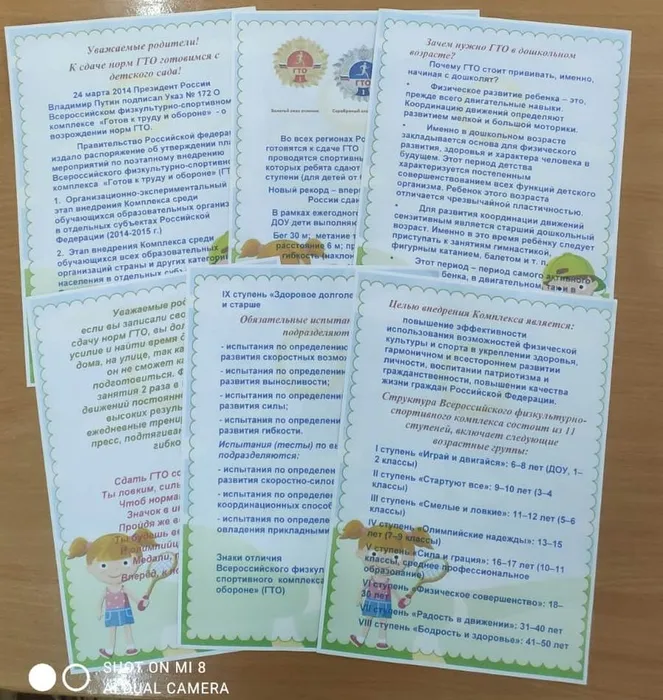 Уважаемые родители!
К сдаче норм ГТО готовимся с
детского сада!
24 марта 2014 Президент России
Владимир Путин подписал Указ № 172 О
Всероссийском физкультурно-спортивном
комплексе «Готов к труду и обороне» - о
возрождении норм ГТО.
Правительство Российской федерац
издало распоряжение об утверждении пла
мероприятий по поэтапному внедрению
Всероссийского физкультурно-спортивно
комплекса «Готов к труду и обороне» (ГТ
1. Организационно-экспериментальный
этап внедрения Комплекса среди
обучающихся образовательных организ
в отдельных субъектах Российской
Федерации (2014-2015 г.)
2. Этап внедрения Комплекса среди
обучающихся всех образовательных
организаций страны и других категори
населения в отдельных субъ
ГТО
ГТО
Во всех регионах Ро
готовятся к сдаче ГТО
проводятся спортивны
которых ребята сдают
ступени (для детей от 6
Новый рекорд – впер
России сдан
В рамках ежегодного
ДОУ дети выполняю
Бег 30 м; метание т
расстояние 6 м; пр
гибкость (наклон
Зачем нужно ГТО в дошкольном
возрасте?
Почему ГТО стоит прививать, именно,
начиная с дошколят?
• Физическое развитие ребенка – это,
прежде всего двигательные навыки.
Координацию движений определяют
развитием мелкой и большой моторики.
• Именно в дошкольном возрасте
закладывается основа для физического
развития, здоровья и характера человека в
будущем. Этот период детства
характеризуется постепенным
совершенствованием всех функций детского
организма. Ребенок этого возраста
отличается чрезвычайной пластичностью.
• Для развития координации движений
сензитивным является старший дошкольный
возраст. Именно в это время ребёнку следует
приступать к занятиям гимнастикой,
фигурным катанием, балетом и т. п.
Этот период – период самого активного
бенка, в двигательном
Уважаемые род
если вы записали сво
сдачу норм ГТО, вы дол
усилие и найти время д
дома, на улице, так ка
он не сможет ка
подготовиться. Ф
занятия 2 раза в
движений постоянно
высоких резуль
ежедневные трени
пресс, подтягива
гибко
Сдать ГТО со
Ты ловким, силь
Чтоб норма
Значок в ит
Пройдя же в
Ты будешь ве
И олимпийц
Медали,
Вперёд, к но
IX ступень «Здоровое долголе
и старше
Обязательные испыта
подразделяют
- испытания по определению
развития скоростных возмож
- испытания по определению
развития выносливости;
- испытания по определению
развития силы;
- испытания по определению
развития гибкости.
Испытания (тесты) по вы
подразделяются:
- испытания по определен
развития скоростно-силов
- испытания по определен
координационных способ
- испытания по определен
овладения прикладными
Знаки отличия
Всероссийского физкуль
спортивного комплекса
обороне» (ГТО)
Целью внедрения Комплекса является:
повышение эффективности
использования возможностей физической
культуры и спорта в укреплении здоровья,
гармоничном и всестороннем развитии
личности, воспитании патриотизма и
гражданственности, повышении качества
жизни граждан Российской Федерации.
Структура Всероссийского физкультурно-
спортивного комплекса состоит из 11
ступеней, включает следующие
возрастные группы:
I ступень «Играй и двигайся»: 6–8 лет (ДОУ, 1–
2 классы)
II ступень «Стартуют все»: 9–10 лет (3–4
классы)
III ступень «Смелые и ловкие»: 11–12 лет (5–6
классы)
IV ступень «Олимпийские надежды»: 13–15
лет (7–9 классы)
V ступень «Сила и грация»: 16–17 лет (10–11
классы, среднее профессиональное
образование)
VI ступень «Физическое совершенство»: 18–
30 лет
VII ступень «Радость в движении»: 31–40 лет
VIII ступень «Бодрость и здоровье»: 41–50 лет
SHOT ON MI 8
AI DUAL CAMERA